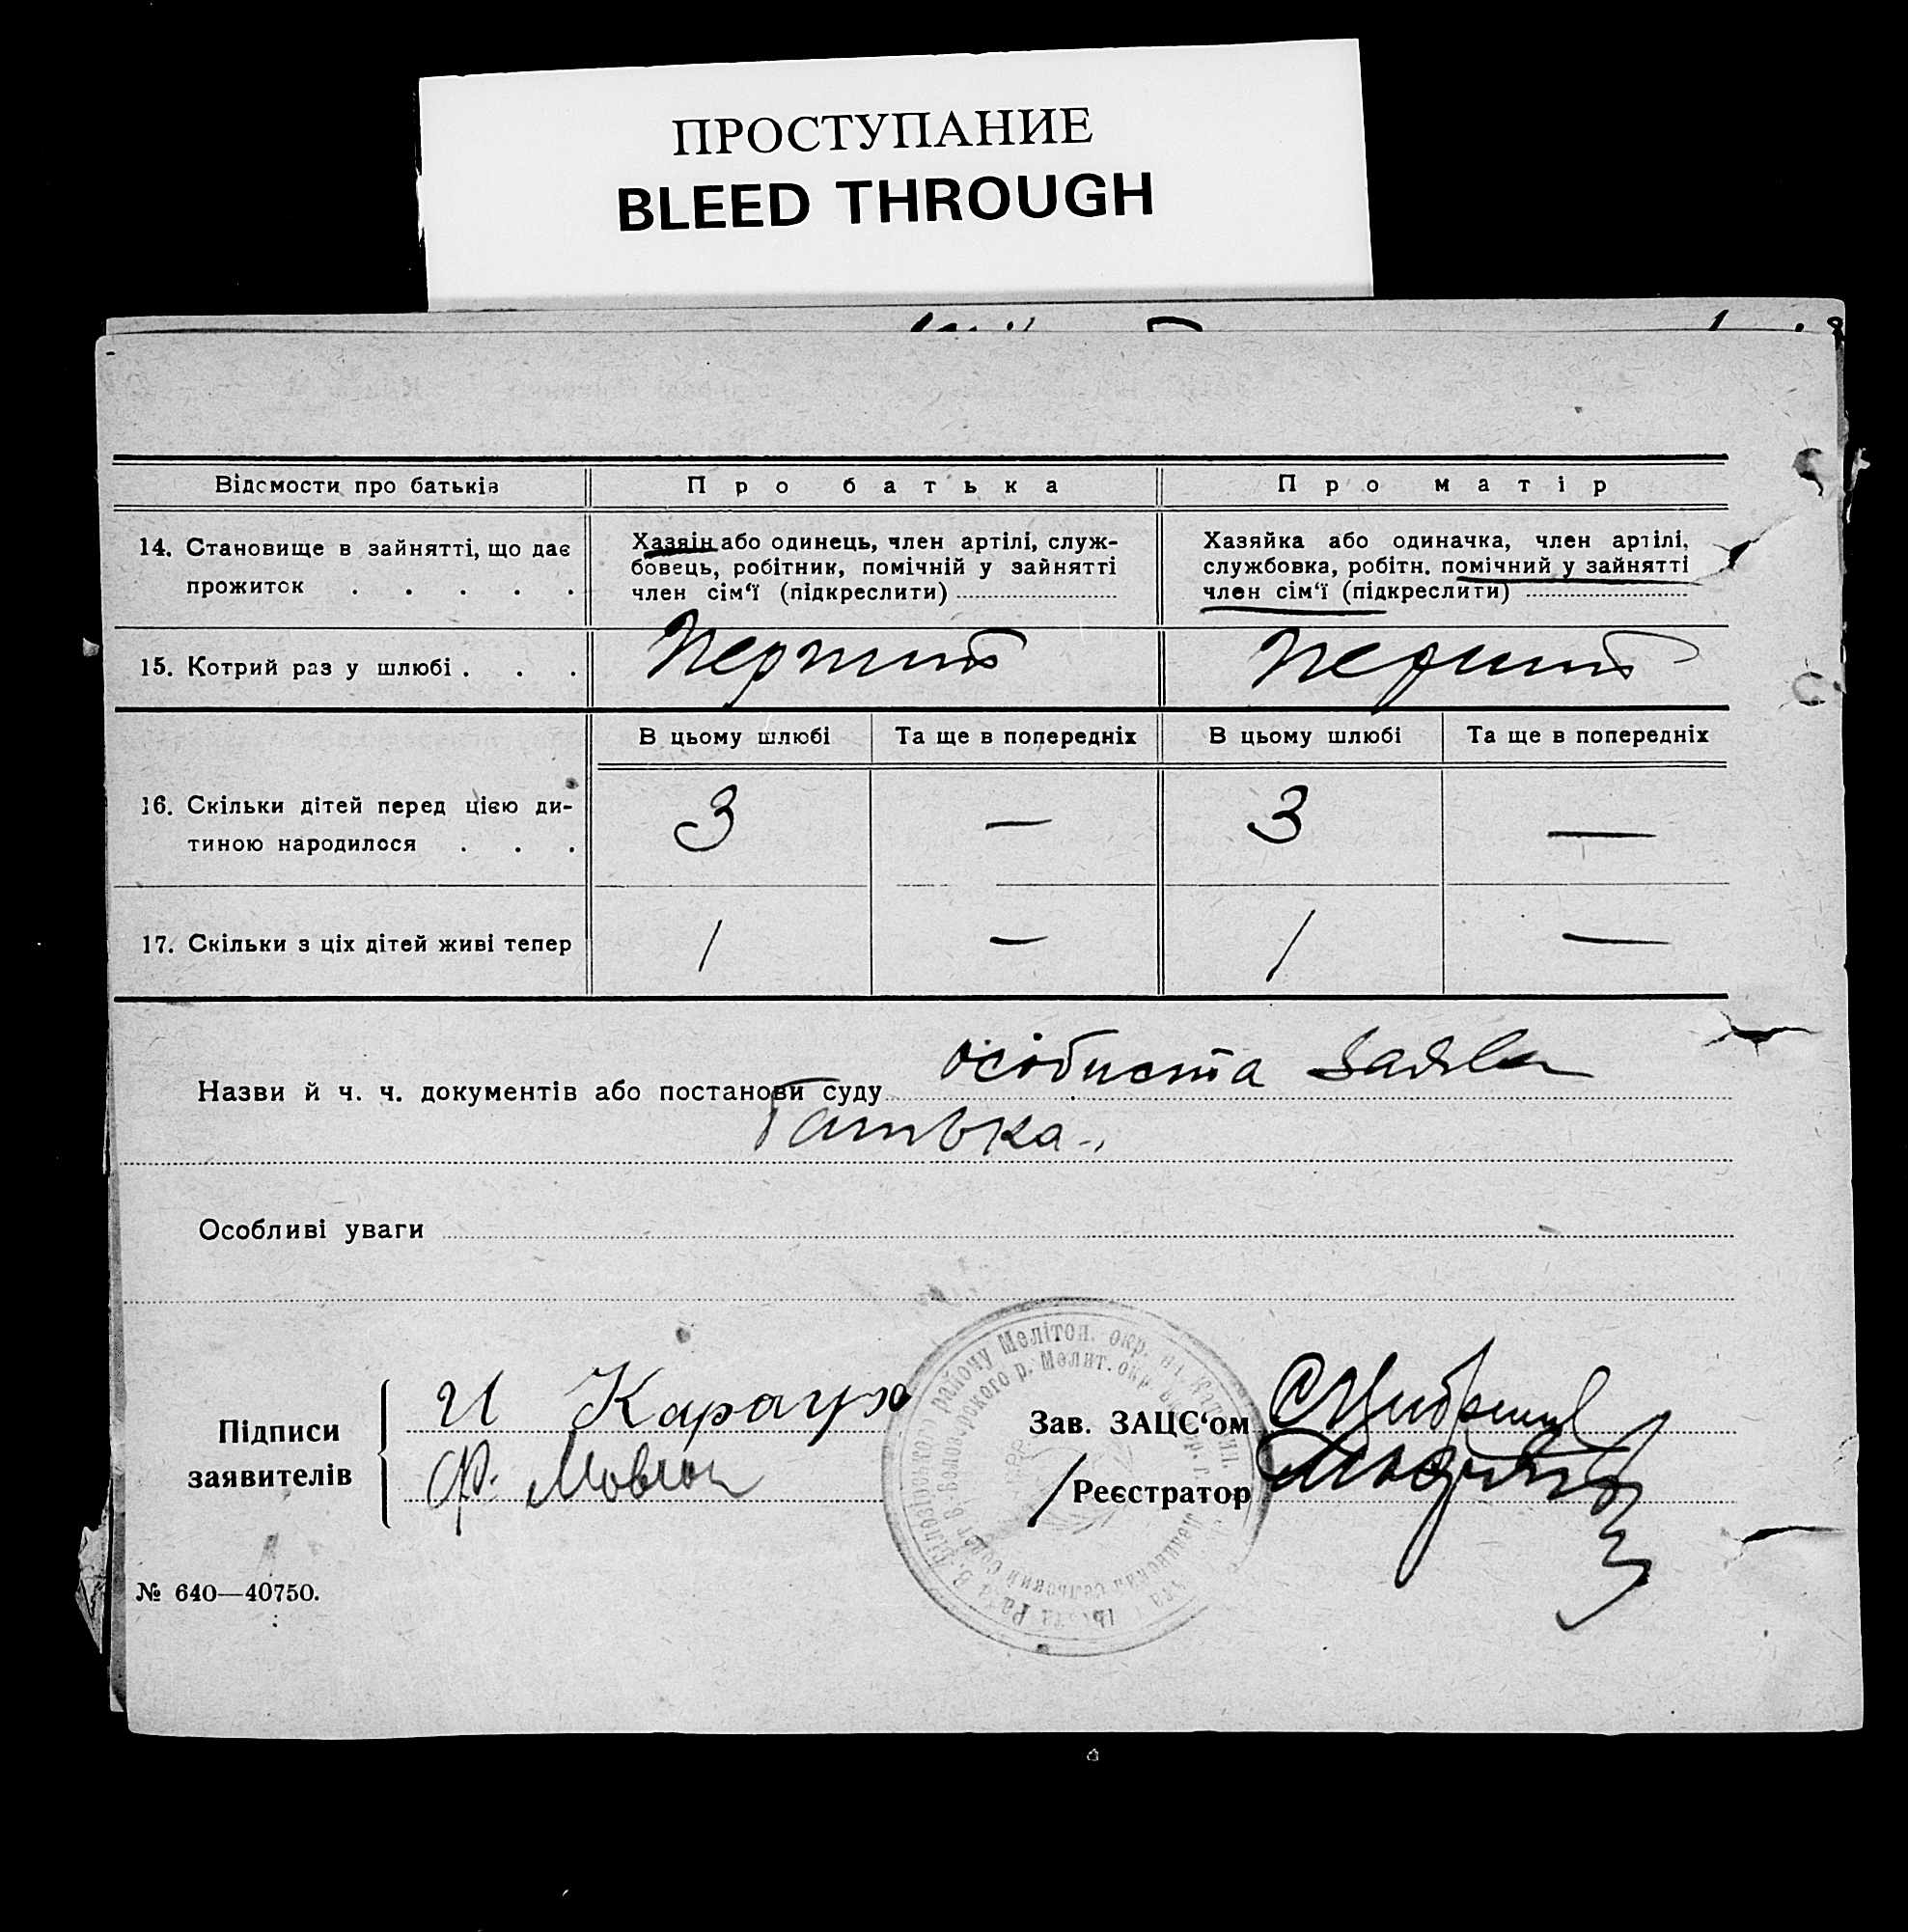 ПРОСТУПАНИЕ
BLEED THROUGH
Відомости про батьків
Про батька
Про матір
14. Становище в зайнятті, що дає
прожиток . . . . .
Хазяін або одинець, член артілі, служ-
бовець, робітник, помічній у зайнятті
член сім‘ї (підкреслити)
Хазяйка або одиначка, член артілі,
службовка, робітн. помічний у зайнятті
член сім‘ї (підкреслити)
15. Котрий раз у шлюбі . . .
Перший
Перший
В цьому шлюбі
Та ще в попередніх
В цьому шлюбі
Та ще в попередніх
16. Скільки дітей перед цією ди-
тиною народилося . . .
3 — 3 —
17. Скільки з ціх дітей живі тепер
1 — 1 —
Назви й ч. ч. документів або постанови суду особиста заява
батька
Особливі уваги
Підписи
заявителів
И Караух
Ф.
Зав. ЗАЦС‘ом
/Реєстратор
району Мелітоп. окр.
р. Мелит. окр.
№ 640—40750.